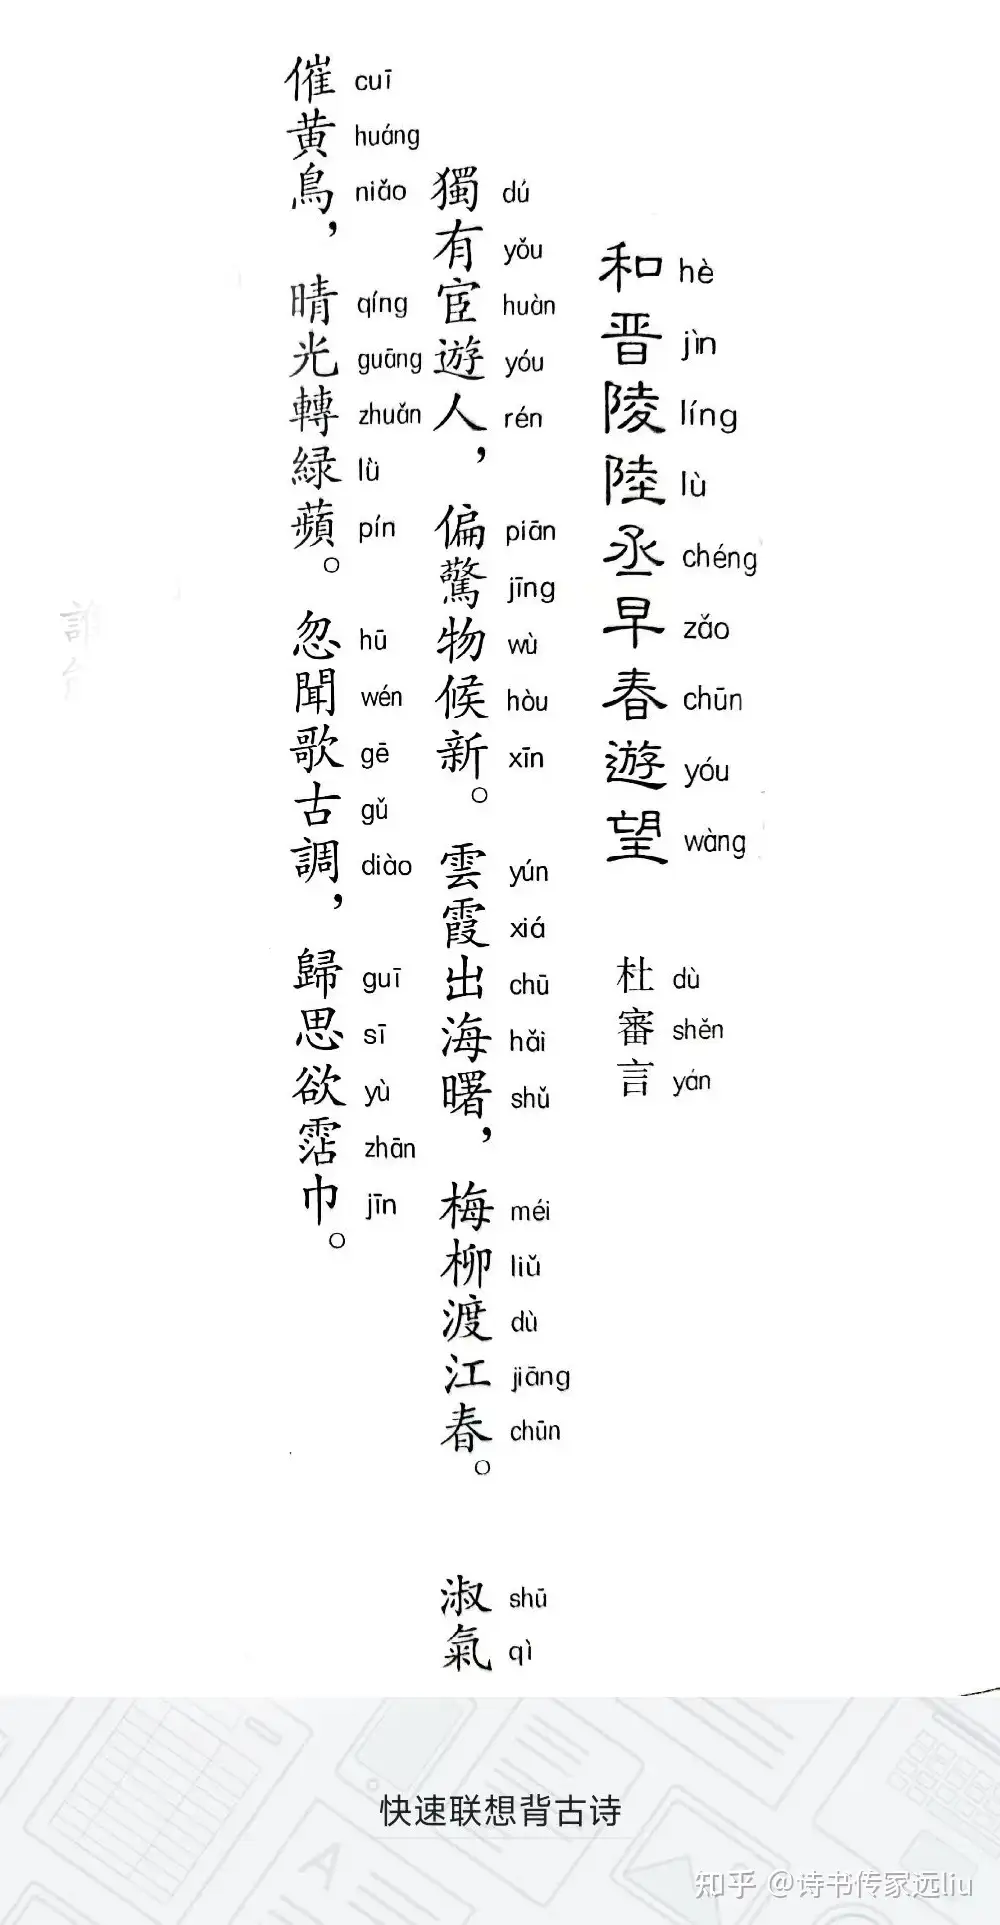 和晋陵陸丞早春遊望
hè jìn líng lù chéng zǎo chūn yóu wàng
杜審言
dù shěn yán
獨有宦遊人，偏驚物候新。雲霞出海曙，梅柳渡江春。淑氣
dú yǒu huàn yóu rén piān jīng wù hòu xīn yún xiá chū hǎi shǔ méi liǔ dù jiāng chūn shū qì
催黄鳥，晴光轉緑蘋。忽聞歌古調，歸思欲霑巾。
cuī huáng niǎo qíng guāng zhuǎn lǜ pín hū wén gē gǔ diào guī sī yù zhān jīn
快速联想背古诗
知乎 @诗书传家远liu